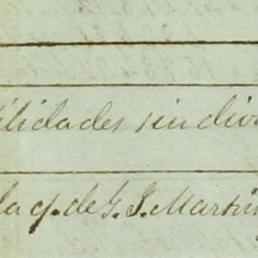 ilidades sin div
la q. de G. J. Martin